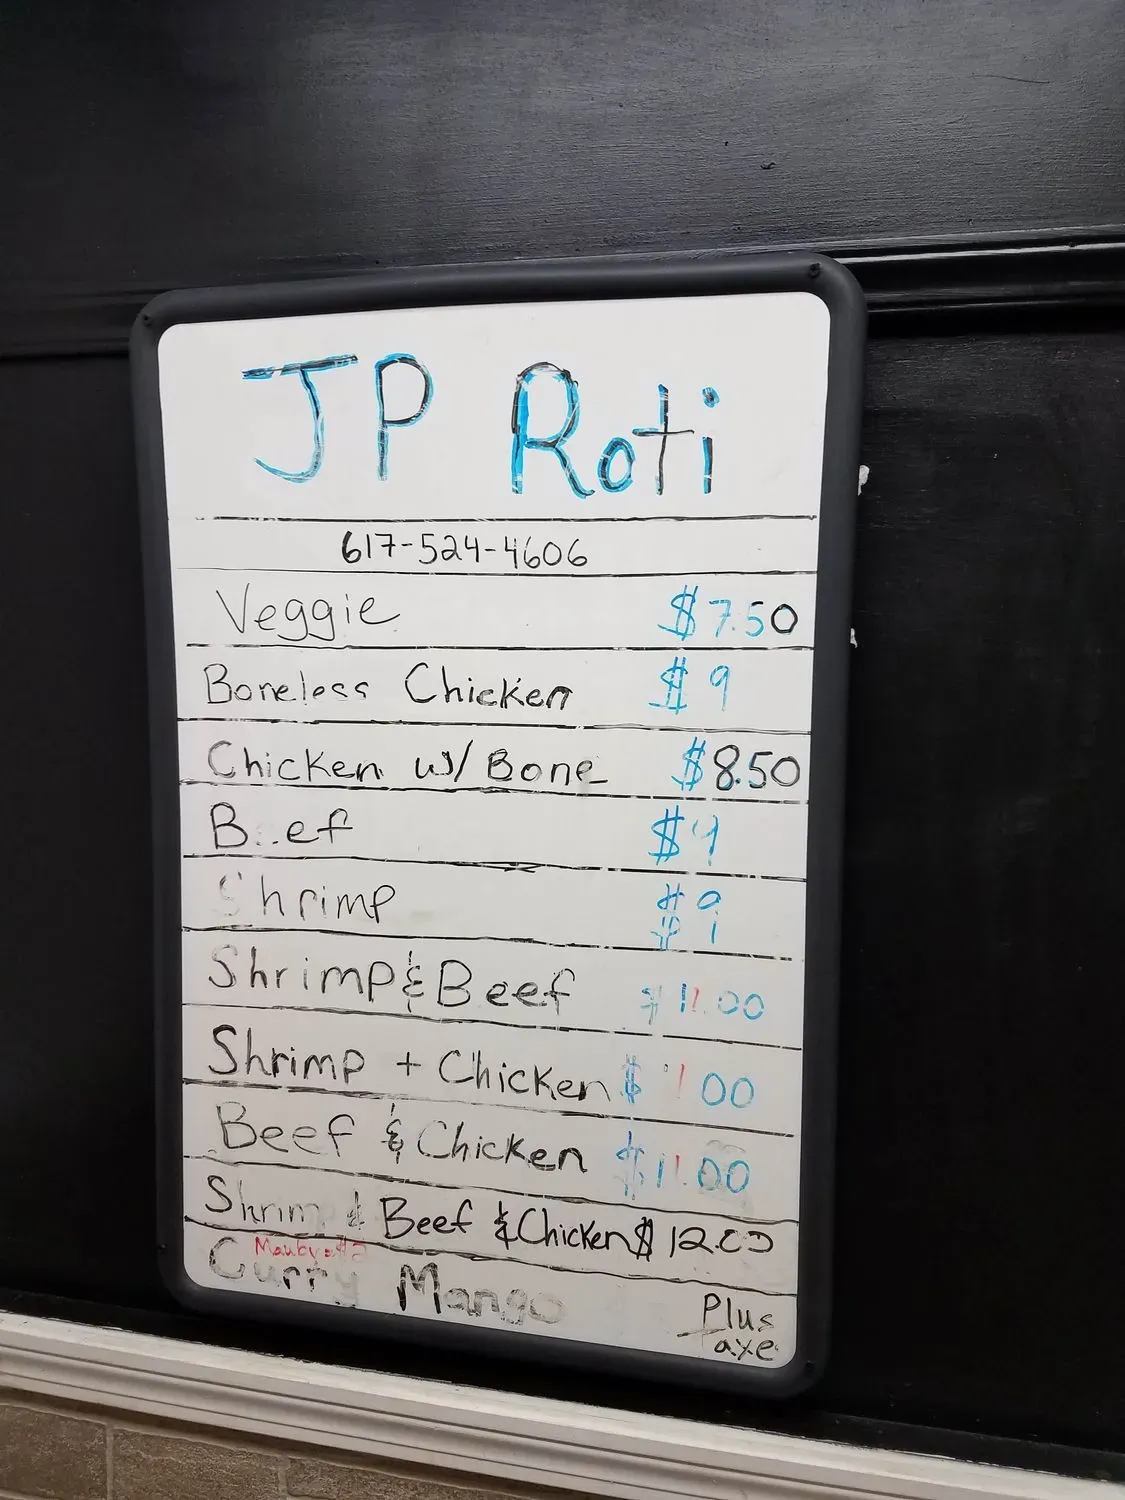 JP Roti
617-524-4606
Veggie $7.50
Boneless Chicken $9
Chicken w/ Bone $8.50
Beef $9
Shrimp $9
Shrimp & Beef $11.00
Shrimp + Chicken $ 00
Beef & Chicken $11.00
Shrimp & Beef & Chicken $12.00
Curry Mango
Plus
taxe